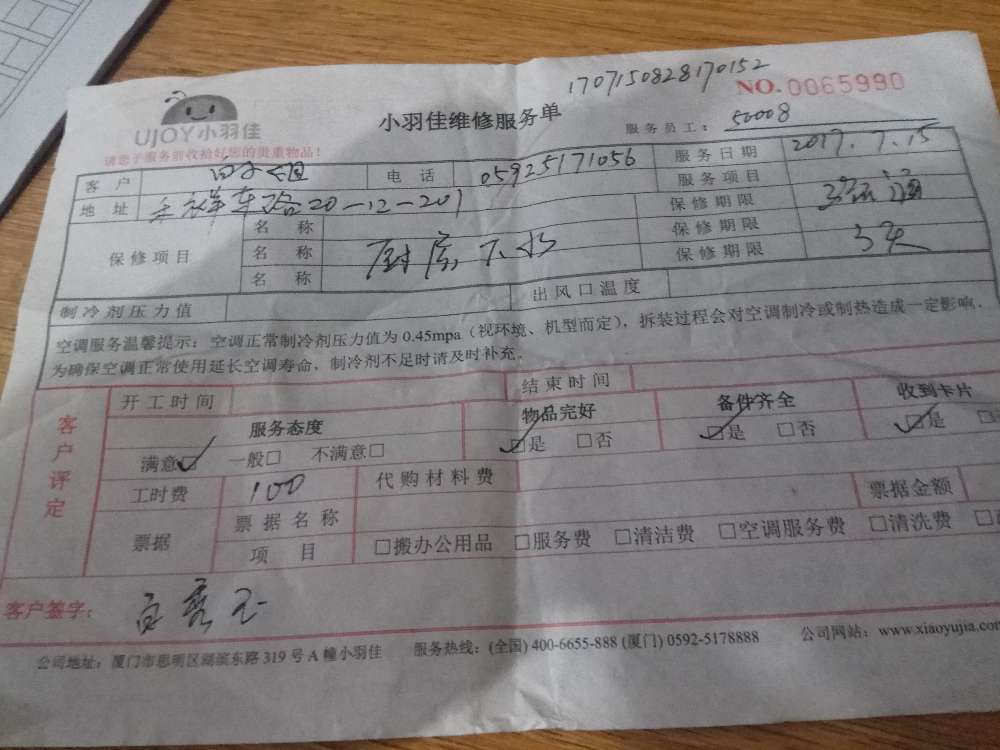 1707150828170152
NO.0065990
UJOY小羽佳
小羽佳维修服务单
服务员工: 50008
请您于服务前收拾好您的贵重物品!
客户 电话 05925171056 服务日期 2017.7.15
地址 20-12-201 服务项目
保修项目 名称 厨房下水 保修期限
名称 保修期限 3天
名称 保修期限
制冷剂压力值 出风口温度
空调服务温馨提示: 空调正常制冷剂压力值为0.45mpa(视环境、机型而定),拆装过程会对空调制冷或制热造成一定影响.
为确保空调正常使用延长空调寿命,制冷剂不足时请及时补充.
客户评定
开工时间 结束时间
服务态度 物品完好 备件齐全 收到卡片
满意☑ 一般□ 不满意□ ☑是 □否 ☑是 □否 ☑是
工时费 100 代购材料费
票据 票据名称 票据金额
项目 □搬办公用品 □服务费 □清洁费 □空调服务费 □清洗费
客户签字:
公司地址: 厦门市思明区湖滨东路319号A幢小羽佳 服务热线: (全国) 400-6655-888 (厦门) 0592-5178888 公司网站: www.xiaoyujia.com